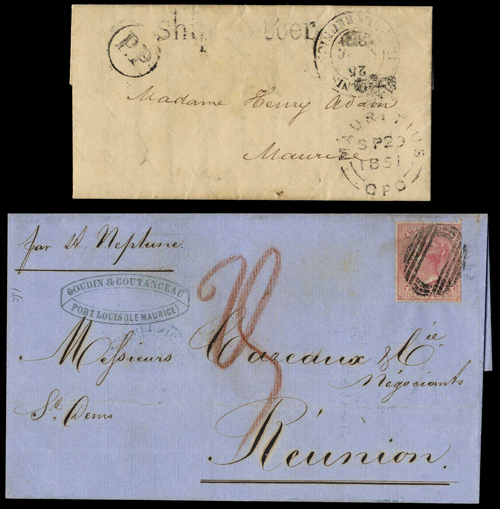 P.P.
Ship Letter
Madame Henry Adam
Maurice
MAURITIUS
SP 29
1851
GPO
par St. Neptune.
GOUDIN & COUTANCEAU
PORT LOUIS (ILE MAURICE)
Messieurs Cazeaux & Cie
Négociants
St. Denis
Réunion.